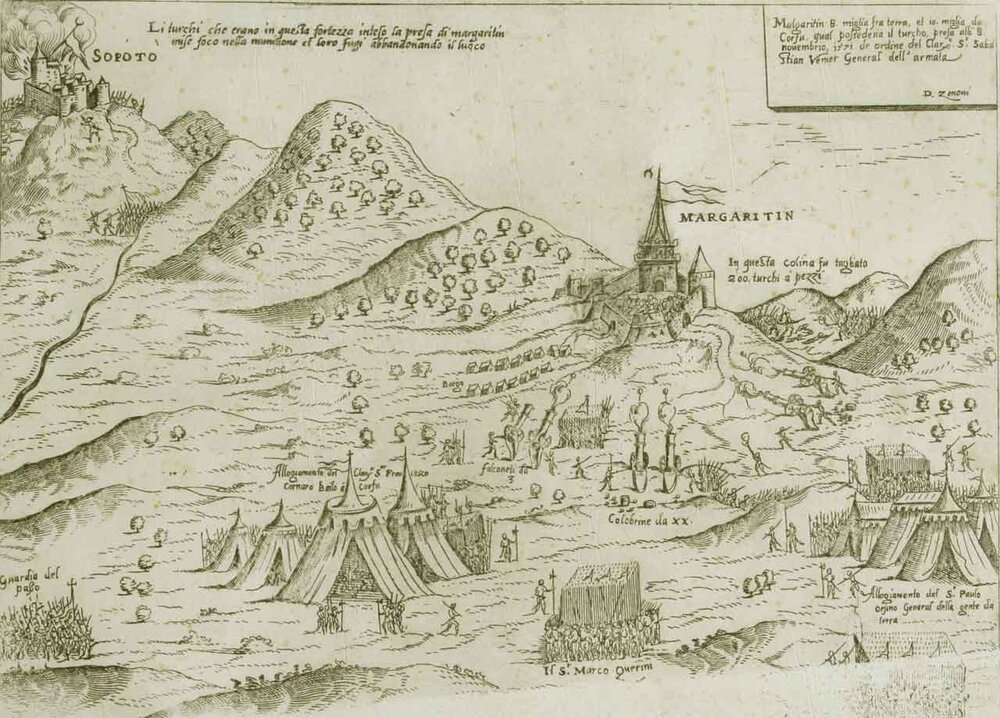 Li turchi che erano in questa fortezza inteso la presa di margaritin
mise foco nella munitione et loro fugi abbandonando il luoco
SOPOTO
Malgaritin 8. miglia fra terra, et 10. miglia da
Corfu, qual possedeva il turcho, presa alli 8
novembrio, 1571 de ordine del Clar. S. Seba
stian Venier General dell'armata
D. Zenoni
MARGARITIN
In questa colina fu tagliato
200. turchi a pezzi
Borgo
Allogiamento del Clar. S. Francesco
Cornaro Bailo Corfu
falconeti da
3
Colobrine da XX.
Guardia del
passo
Allogiamento del S. Paulo
Orsino General della gente da
terra
Il S. Marco Querini